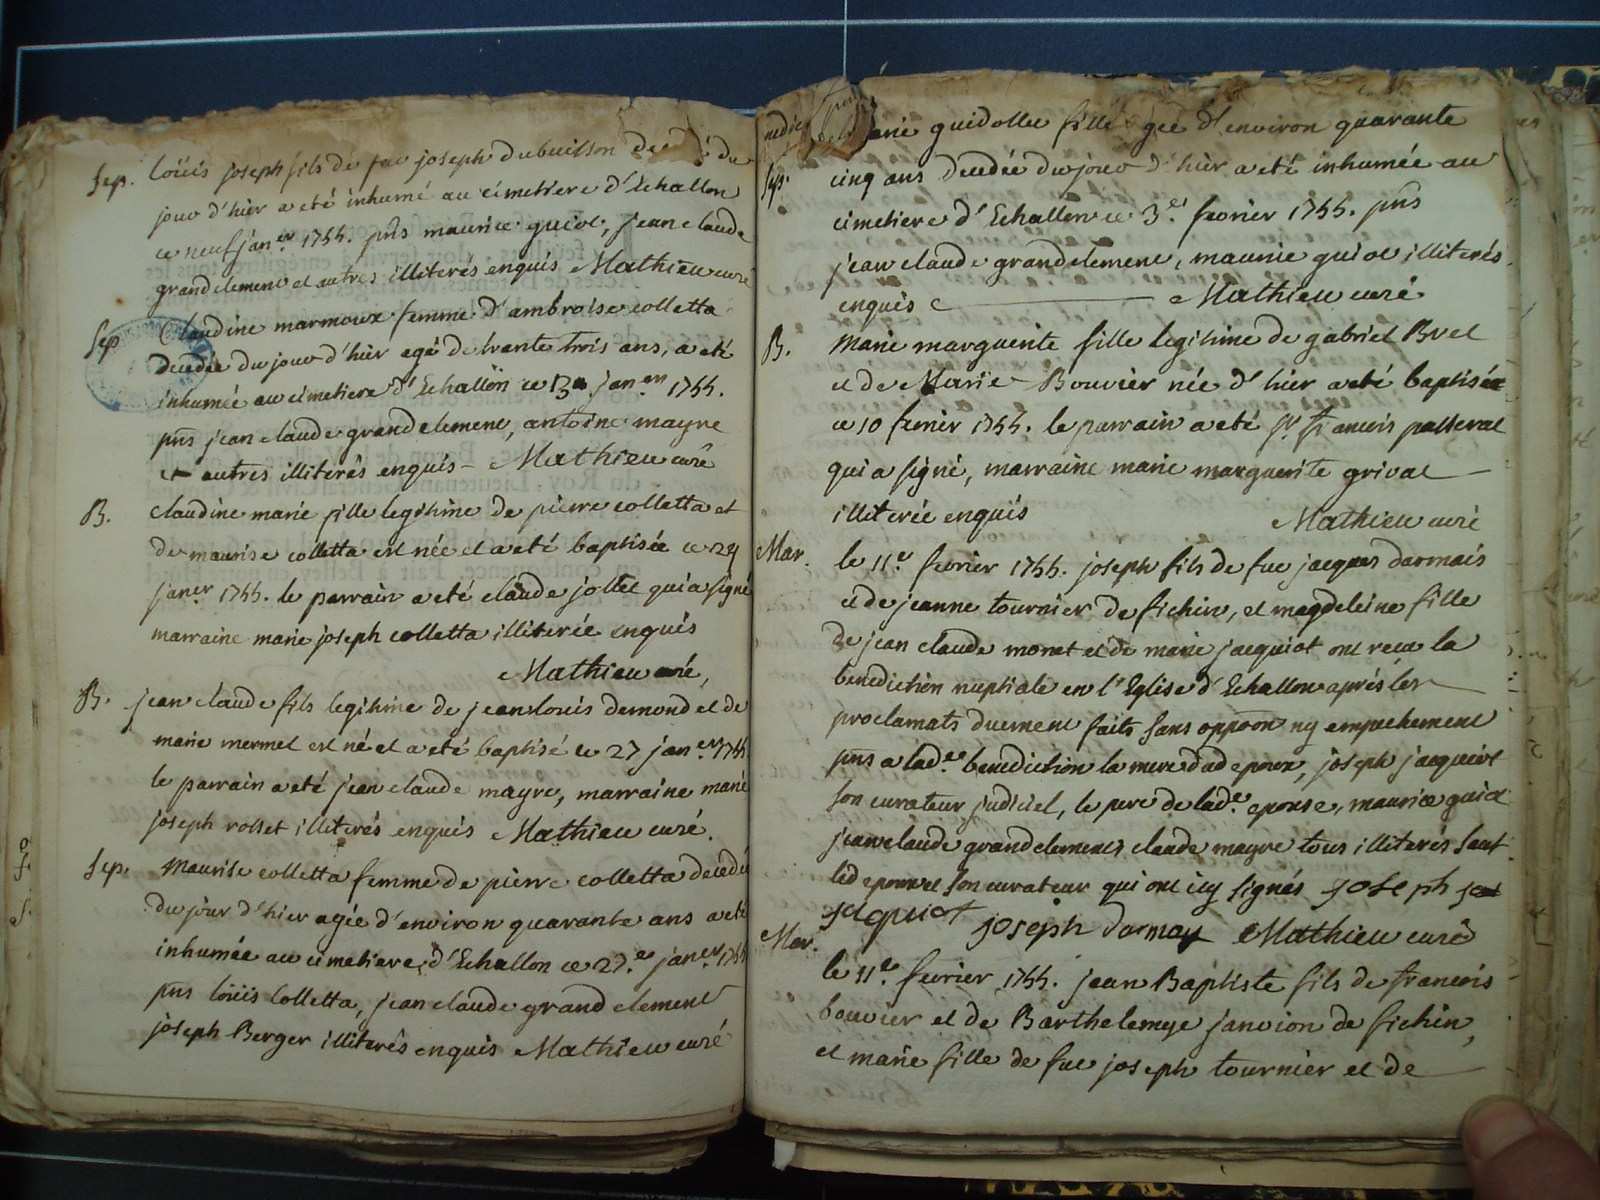 Sep. Loüis joseph fils de feu joseph dubuisson du
jour d'hier a eté inhumé au cimetiere d'Echallon
ce neuf jan.er 1755. pñs maurice guiot, jean claude
grandclement et autres illiterés enquis Mathieu curé
Sep Claudine marmoux femme d'ambroise colletta
decedée du jour d'hier agé de trante trois ans, a eté
inhumée au cimetiere d'Echallon ce 13e jan.er 1755.
pñs jean claude grandclement, antoine mayre
et autres illiterés enquis - Mathieu curé
B. claudine marie fille legitime de pierre colletta et
de maurise colletta est née et a eté baptisée ce 25
janer 1755. le parrain a eté claude jollet qui a signé
marraine marie joseph colletta illiterée enquis
Mathieu curé,
B. jean claude fils legitime de jean louis demond et de
marie mermet est né et a eté baptisé ce 27 jan.er 1755
le parrain a eté jean claude mayre, marraine marie
joseph rosset illiterés enquis Mathieu curé.
Sep. Maurise colletta femme de pierre colletta decedée
du jour d'hier agée d'environ quarante ans a eté
inhumée au cimetiere d'Echallon ce 27.e jan.er 1755
pñs loüis Colletta, jean claude grand clement
joseph Berger illiterés enquis Mathieu curé
guidollu fille d'environ quarante
Sep. cinq ans decedée du jour d'hier a eté inhumée au
cimetiere d'Echallon ce 3.e fevrier 1755. pñs
jean claude grandclement, maurice guiot illiterés
enquis Mathieu curé
B. Marie marguerite fille legitime de gabriel Bvet
et de Marie Bouvier née d'hier a eté baptisée
ce 10 fevrier 1755. le parrain a eté Sr. francois passerat
qui a signé, marraine marie marguerite grivat
illiterée enquis Mathieu curé
Mar. le 11.e fevrier 1755. joseph fils de feu jacques darmais
et de jeanne tournier de fichin, et magdeleine fille
de jean claude monet et de marie jacquiot ont recu la
benediction nuptiale en l'Eglise d'Echallon aprés les
proclamats duement faits sans oppoon ny empechement
pñs a lad.e benediction la mere dud epoux, joseph jacquiot
son curateur judiciel, le pere de lad.e epouse, maurice guiot
jean claude grandclement claude mayre tous illiterés sauf
led epoux et son curateur qui ont icy signés joseph ja
jaquiot joseph darmay Mathieu curé
Mar. le 11.e fevrier 1755. jean Baptiste fils de francois
bouvier et de Barthelemye janvion de fichin,
et marie fille de feu joseph tournier et de